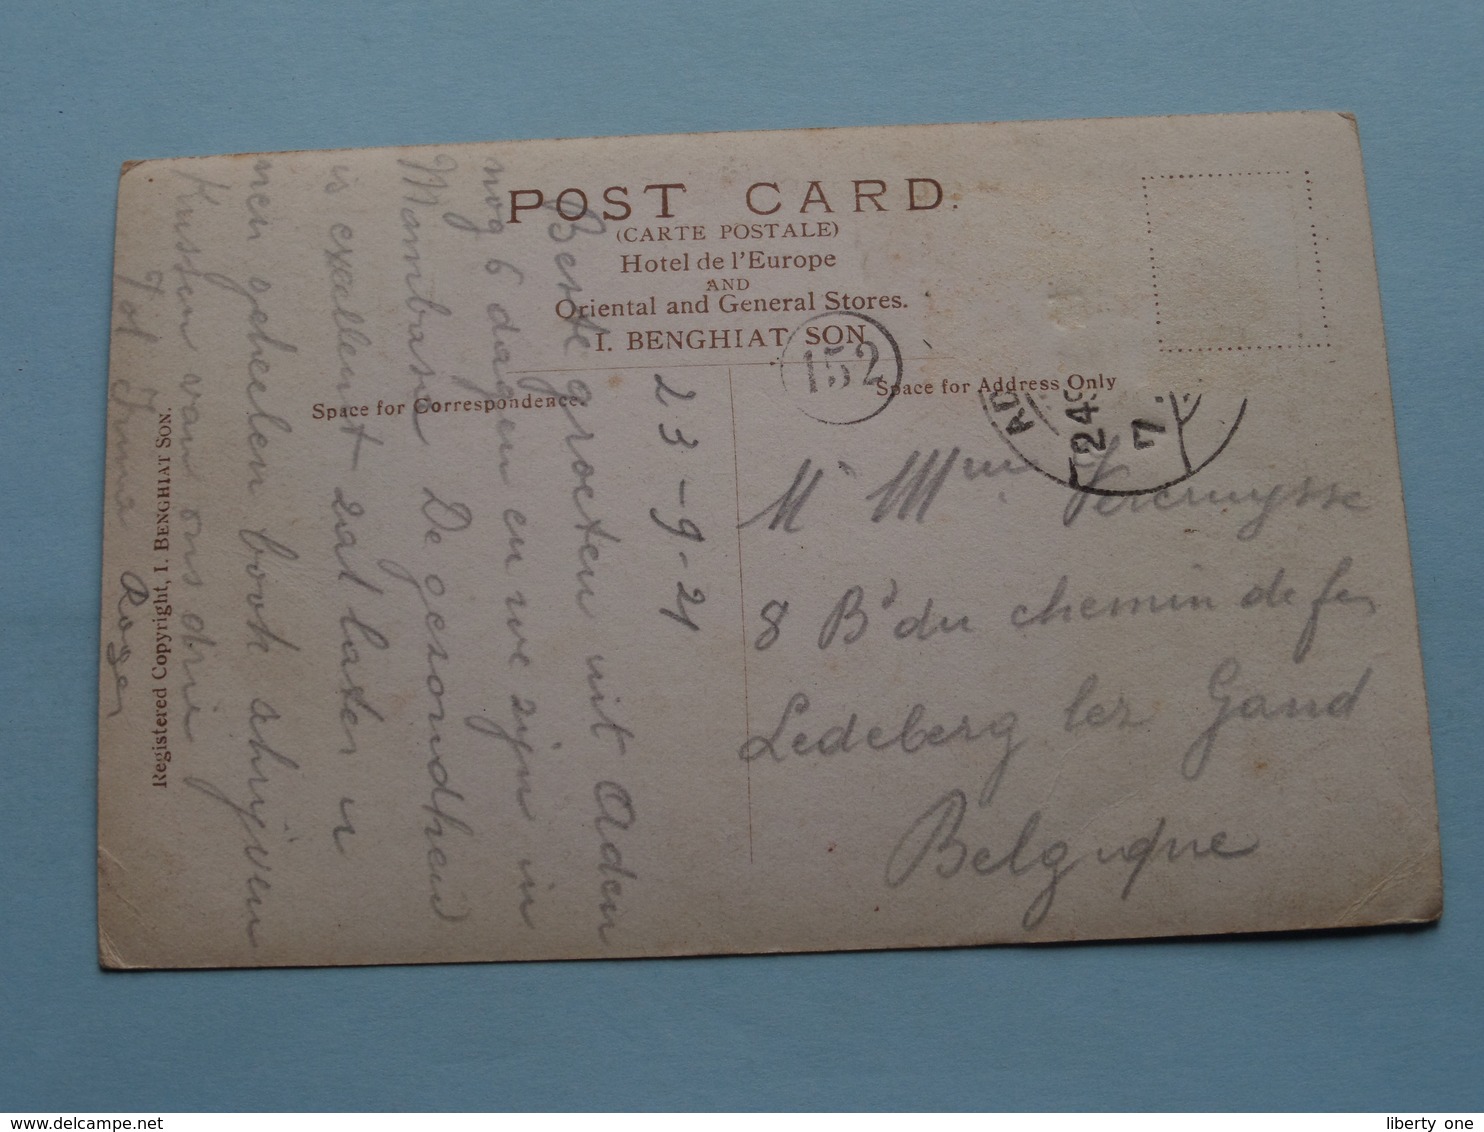 POST CARD.
(CARTE POSTALE)
Hotel de l'Europe
AND
Oriental and General Stores.
I. BENGHIAT SON
Space for Correspondence.
Space for Address Only
152
AD
24S
7.
23-9-24
Beste groeten uit Aden
nog 6 dagen en we zijn in
Mambasa De gezondheid
is excellent zal later u
nen geheelen boek schrijven
Kussen van ons drie
Jef Irma Roger
Mr Mme Vercruysse
8 Bd du chemin de fer
Ledeberg lez Gand
Belgique
Registered Copyright, I. BENGHIAT SON.
liberty one